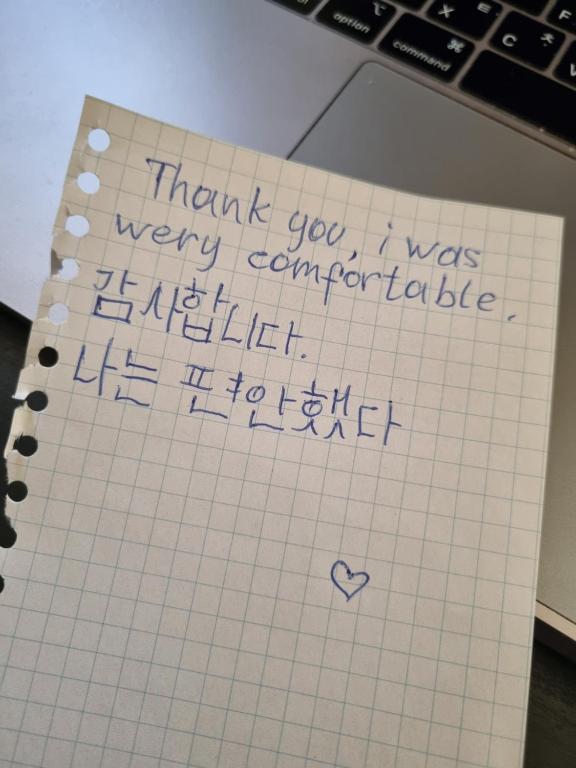 option
⌥
X
ㅌ
F
command
⌘
C
ㅊ
Thank you, i was
wery comfortable.
감사합니다.
나는 편안했다